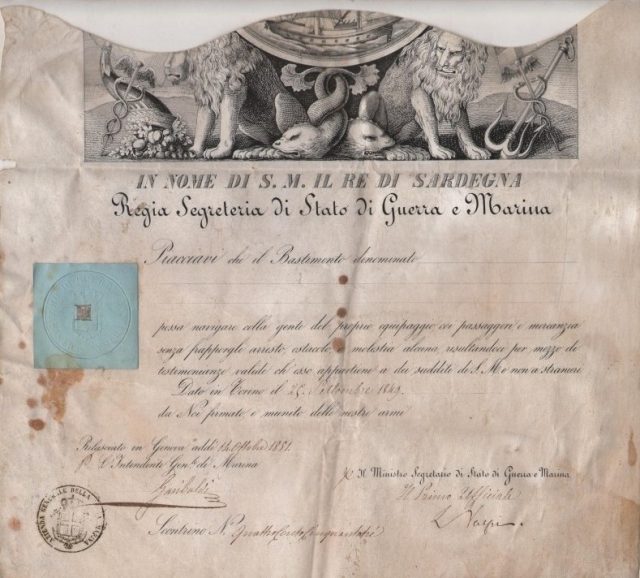 IN NOME DI S. M. IL RE DI SARDEGNA
Regia Segreteria di Stato di Guerra e Marina
Piacciavi che il Bastimento denominato
possa navigare colla gente del proprio equipaggio coi passaggieri e mercanzia
senza frapporgli arresto, ostacolo, o molestia alcuna, risultandoci per mezzo di
testimonianze valide ch'esso appartiene a dei sudditi di S. M. e non a stranieri
Dato in Torino il 25 Settembre 1849
da Noi firmato e munito delle nostre armi
Rilasciato in Genova addì 14 Ottobre 1851.
P. L'Intendente Gen.le di Marina
Garibaldi
Il Ministro Segretario di Stato di Guerra e Marina
Il Primo Uffiziale
Scontrino N. Quattrocentocinquantatre
AZIENDA GENERALE DELLA